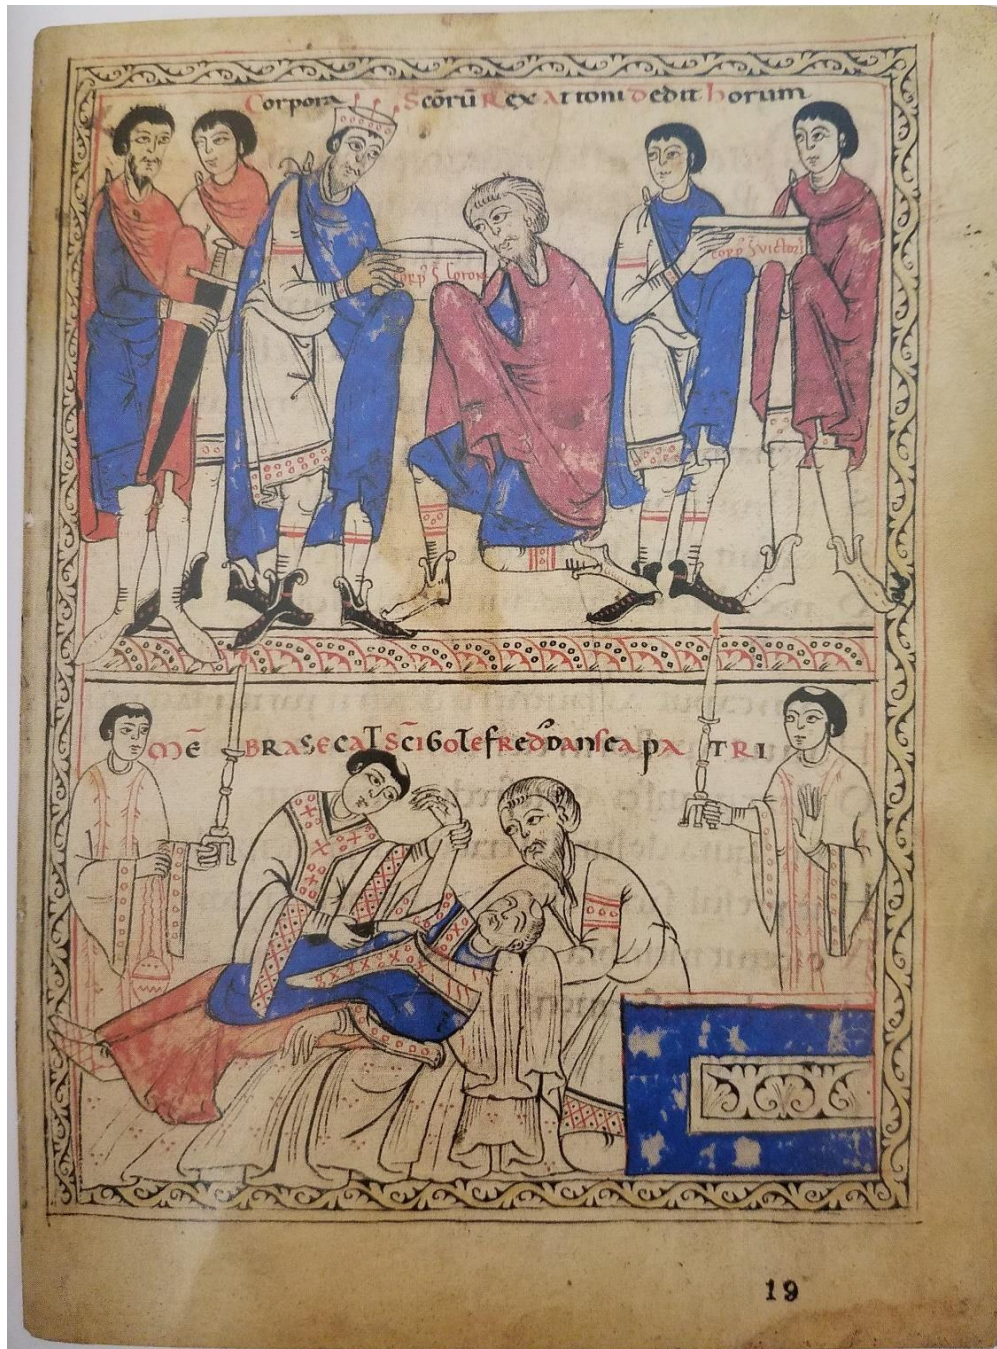 Corpora Scōrū Rex Attoni dedit horum
corp' S Coron
corp' S victor
MĒBRA SECAT SCĪ GOTEfREDuS DANS EA PATRI
19